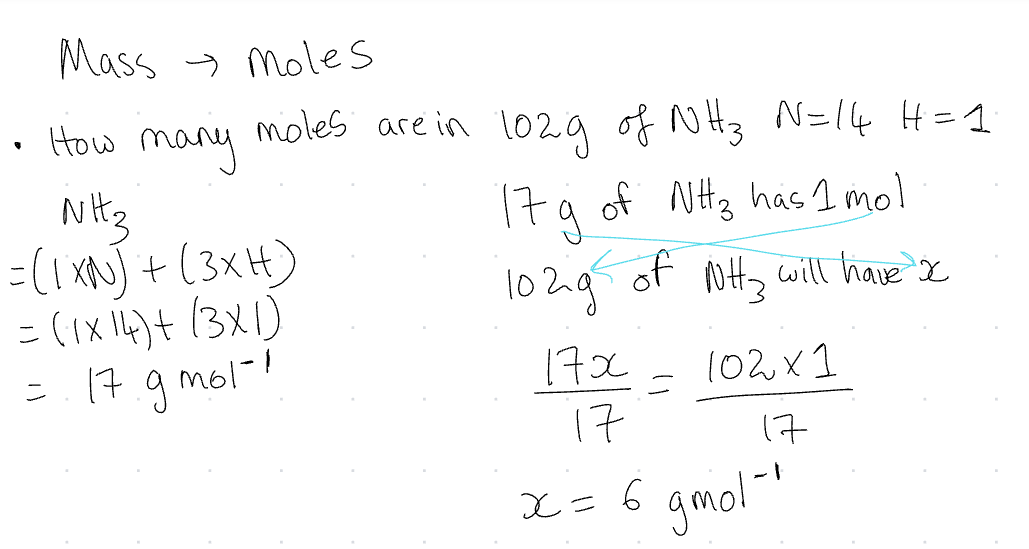 Mass → moles
• How many moles are in 102g of NH₃ N=14 H=1
NH₃
=(1×N)+(3×H)
=(1×14)+(3×1)
= 17 g mol⁻¹
17g of NH₃ has 1 mol
102g of NH₃ will have x
17x/17 = 102×1/17
x = 6 gmol⁻¹